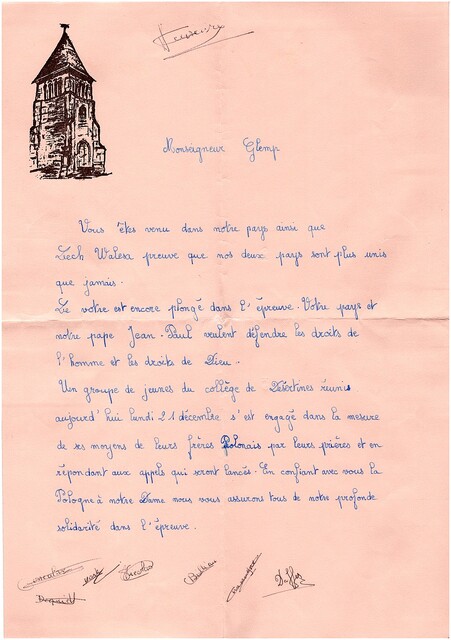 Monseigneur Glemp
Vous êtes venu dans notre pays ainsi que
Lech Walesa preuve que nos deux pays sont plus unis
que jamais.
Le votre est encore plongé dans l'épreuve. Votre pays et
notre pape Jean-Paul veulent défendre les droits de
l'homme et les droits de Dieu..
Un groupe de jeunes du collège de Désertines réunis
aujourd'hui lundi 21 décembre s'est engagé dans la mesure
de ses moyens de leurs frères Polonais par leurs prières et en
répondant aux appels qui seront lancés. En confiant avec vous la
Pologne à notre Dame nous vous assurons tous de notre profonde
solidarité dans l'épreuve.